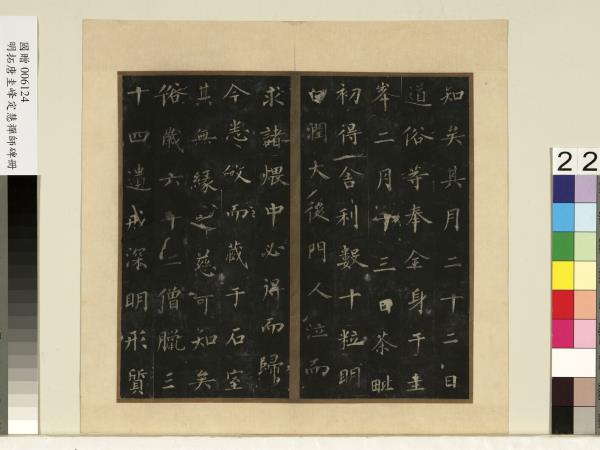 知矣其月二十二日
道俗等奉全身于圭
峯二月十三日茶毗
初得舍利數十粒明
白潤大後門人泣而
求諸煨中必得而歸
今悉斂而藏于石室
其無緣之慈可知矣
俗歲六十二僧臘三
十四遺戒深明形質
國贈 006124
明拓唐圭峰定慧禪師碑冊
22